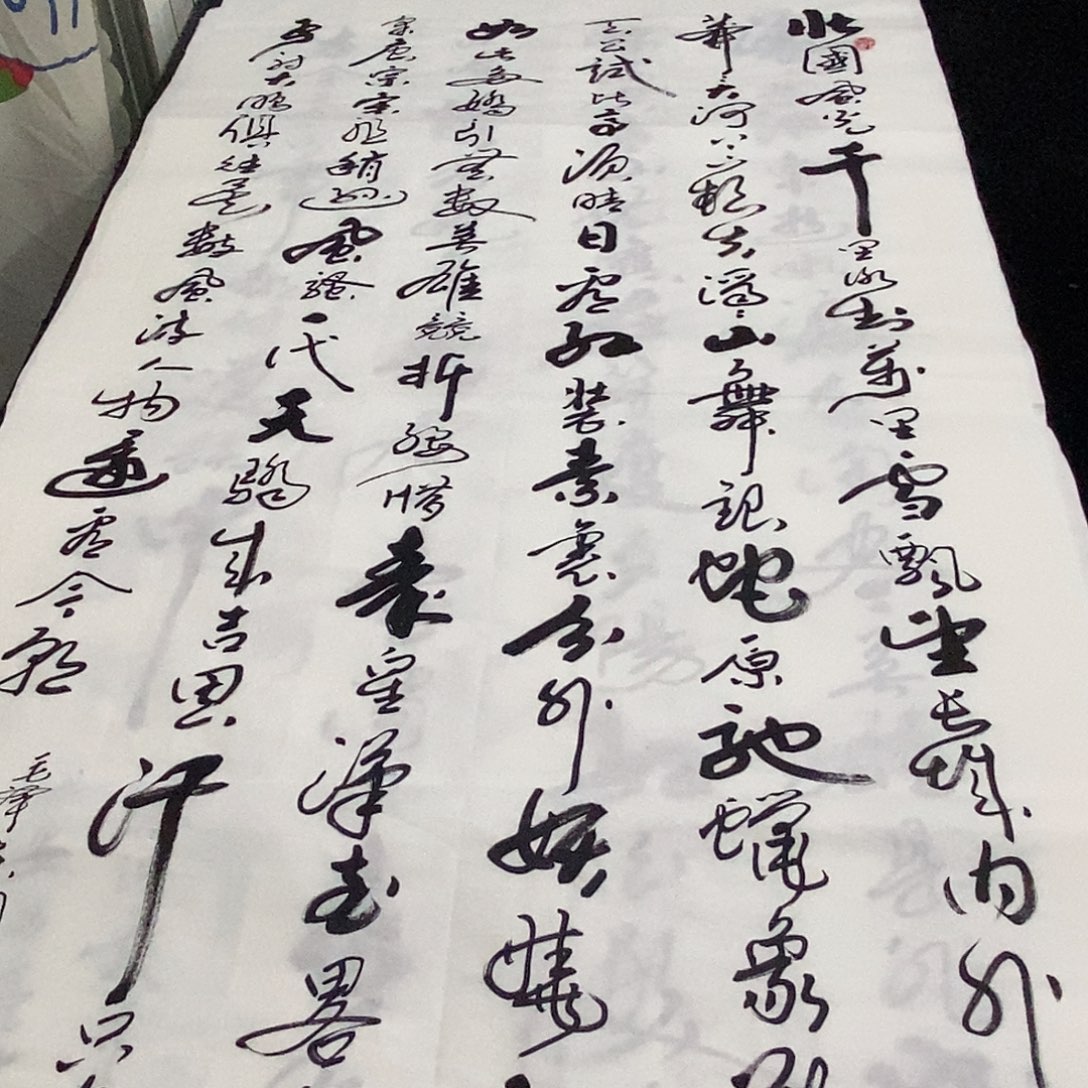 北國風光千里冰封萬里雪飄望長城内外
莽大河上下頓失滔滔山舞銀蛇原馳蠟象
天公試比高須晴日看紅裝素裹分外妖嬈
如此多嬌引無數英雄競折腰惜秦皇漢武略
采唐宗宋祖稍遜風騷一代天驕成吉思汗只
弓射大鵰俱往矣數風流人物還看今朝
毛澤東